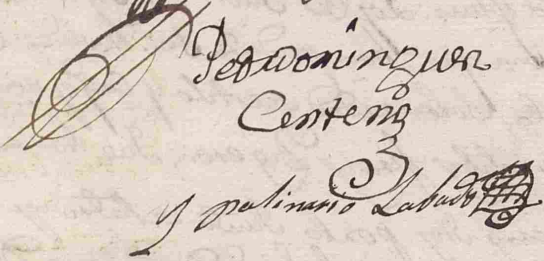 Pedro Dominguez
Centeno
Ypolinario Labado